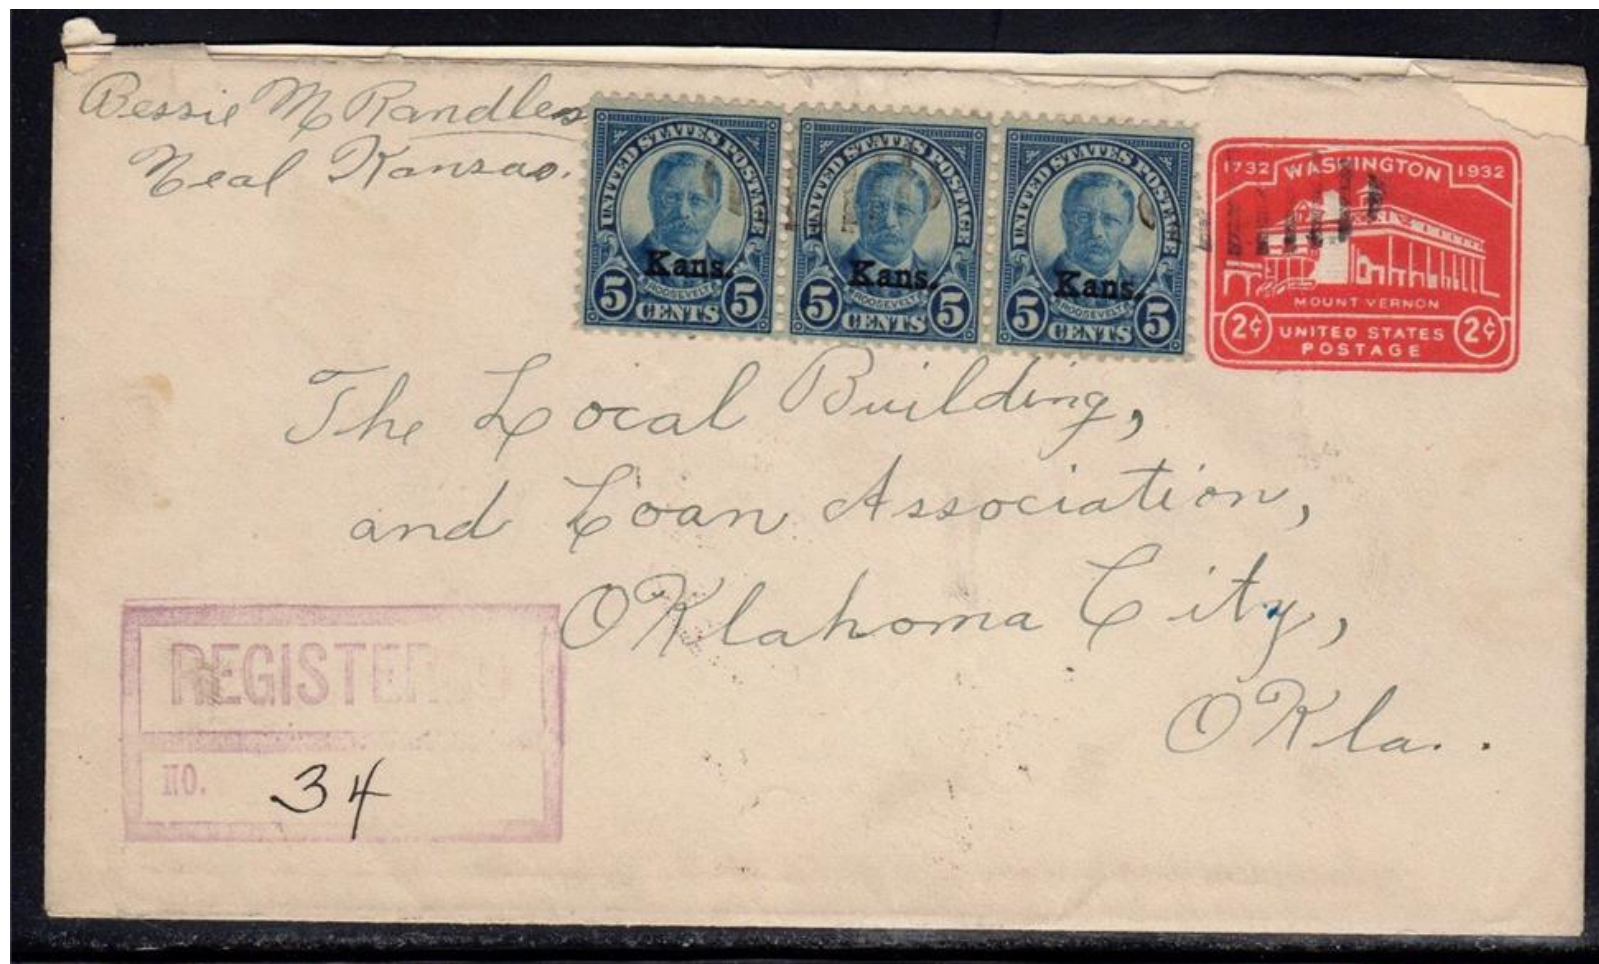 Bessie M Randles
Neal Kansas.
UNITED STATES POSTAGE
Kans.
ROOSEVELT
5 CENTS 5
UNITED STATES POSTAGE
Kans.
ROOSEVELT
5 CENTS 5
UNITED STATES POSTAGE
Kans.
ROOSEVELT
5 CENTS 5
1732 WASHINGTON 1932
MOUNT VERNON
2¢ UNITED STATES 2¢
POSTAGE
The Local Building,
and Loan Association,
OKlahoma City,
OKla..
REGISTERED
NO. 34